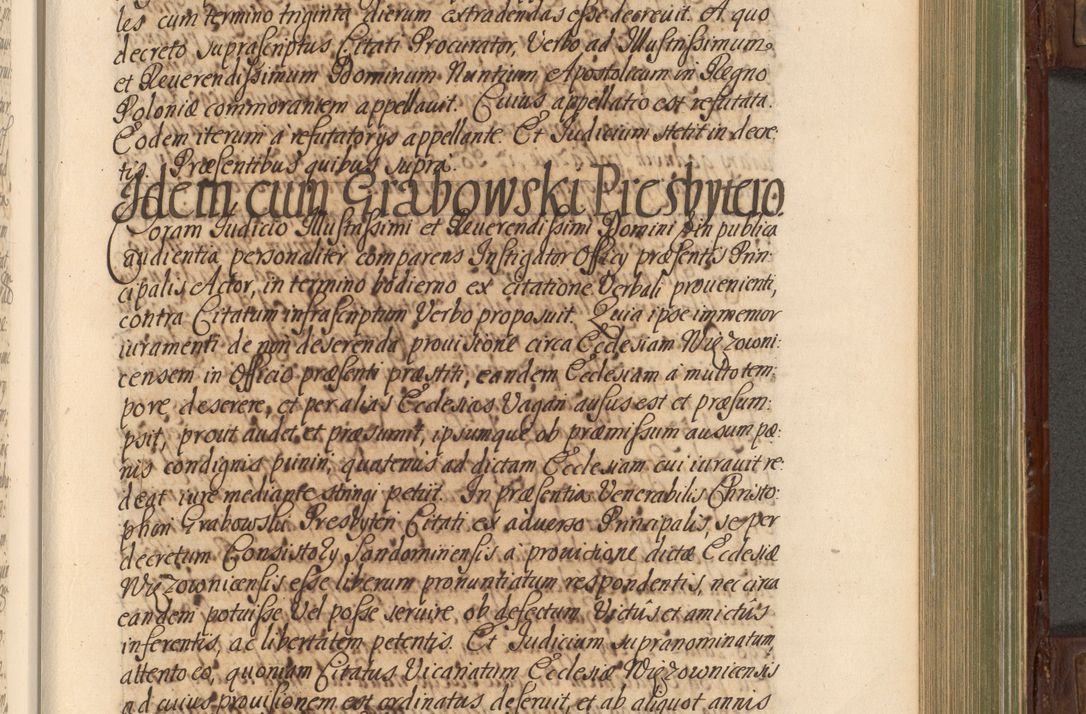 les cum termino triginta dierum extradendas esse decrevit. A quo
decreto suprascriptus Citati Procurator, Verbo ad Illustrissimum
et Reverendissimum Dominum Nuntium Apostolicum in Regno
Poloniæ commorantem appellavit. Cuius appellatio est refutata.
Eodem iterum a refutatorijs appellante. Et Iudicium stetit in decre
tis. Præsentibus quibus supra.
Idem cum Grabowski Presbytero.
Coram Iudicio Illustrissimi et Reverendissimi Domini in publica
audientia personaliter comparens Instigator Officij præsentis Prin:
cipalis Actor, in termino hodierno ex citatione Verbali provenienti,
contra Citatum infrascriptum Verbo proposuit. Quia ipse immemor
iuramenti de non deserenda provisione circa Ecclesiam Wię­zowni:
censem in Officio præsenti præstiti, eandem Ecclesiam a multo tem:
pore deserere, et per alias Ecclesias Vagari ausus est et præsum:
psit, prout audet et præsumit, ipsumque ob præmissum ausum pæ:
nis condignis puniri, quatenus ad dictam Ecclesiam cui iuravit re:
deat iure mediante stringi petijt. In præsentia Venerabilis Christo:
phori Grabowski Presbyteri Citati ex adverso Principalis, se per
decretum Consistorij Sandomiriensis a provicione dictæ Ecclesiæ
Więzownicensis esse liberum pronuntiatum respondentis, nec circa
eandem potuisse Vel posse servire, ob defectum Victûs et amictûs
inferentis, ac libertatem petentis. Et Iudicium supranominatum,
attento eo, quoniam Citatus Vicariatum Ecclesiæ Więzownicensis
ad cuius provisionem est ordinatus deseruit, et ab aliquot annis